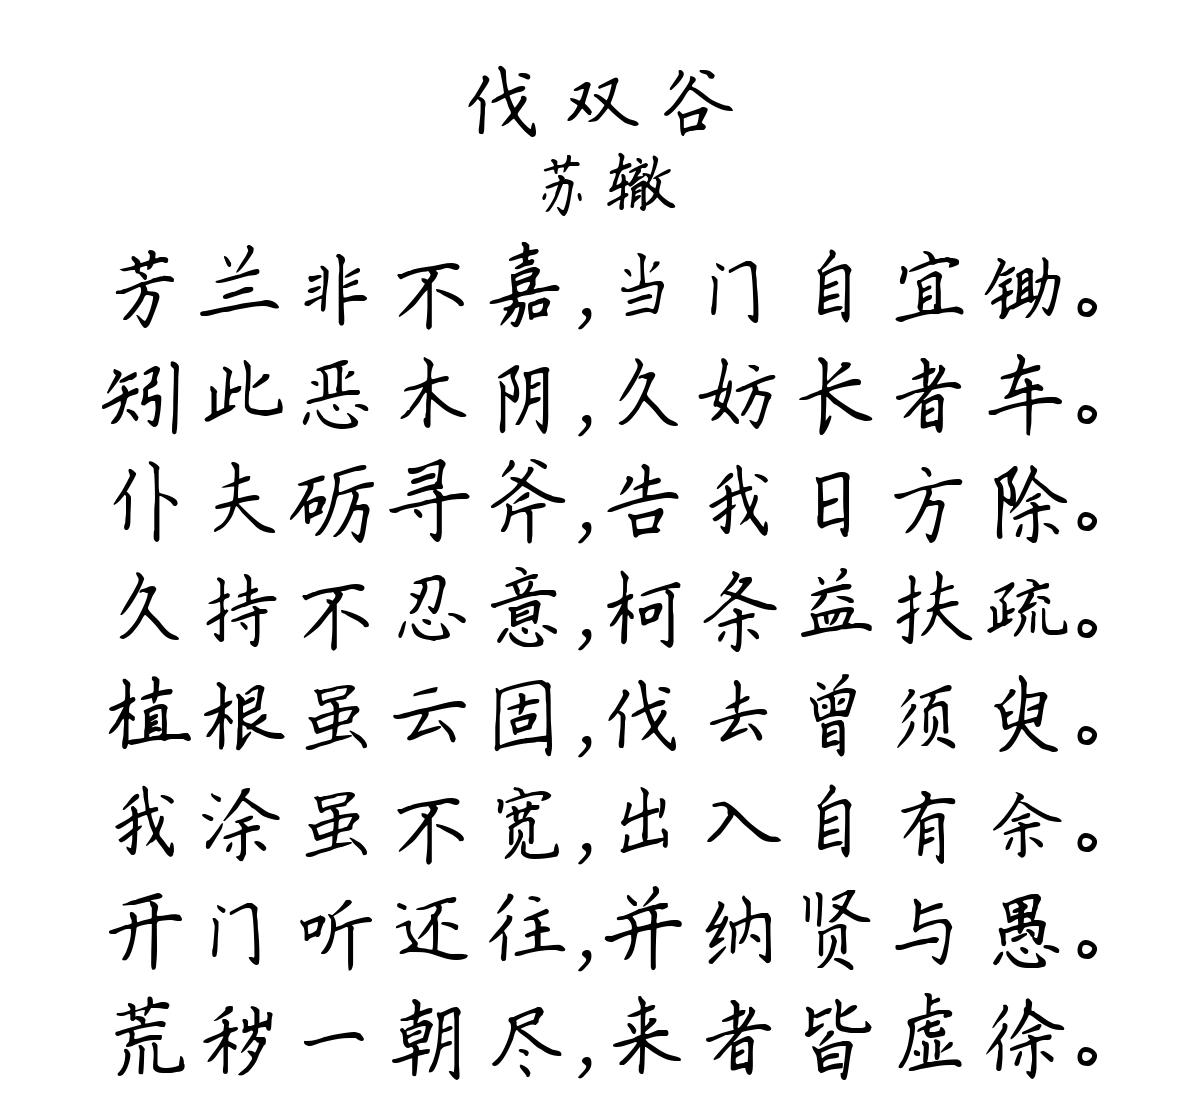 伐双谷
苏辙
芳兰非不嘉,当门自宜锄。
矧此恶木阴,久妨长者车。
仆夫砺寻斧,告我日方除。
久持不忍意,柯条益扶疏。
植根虽云固,伐去曾须臾。
我涂虽不宽,出入自有余。
开门听还往,并纳贤与愚。
荒秽一朝尽,来者皆虚徐。